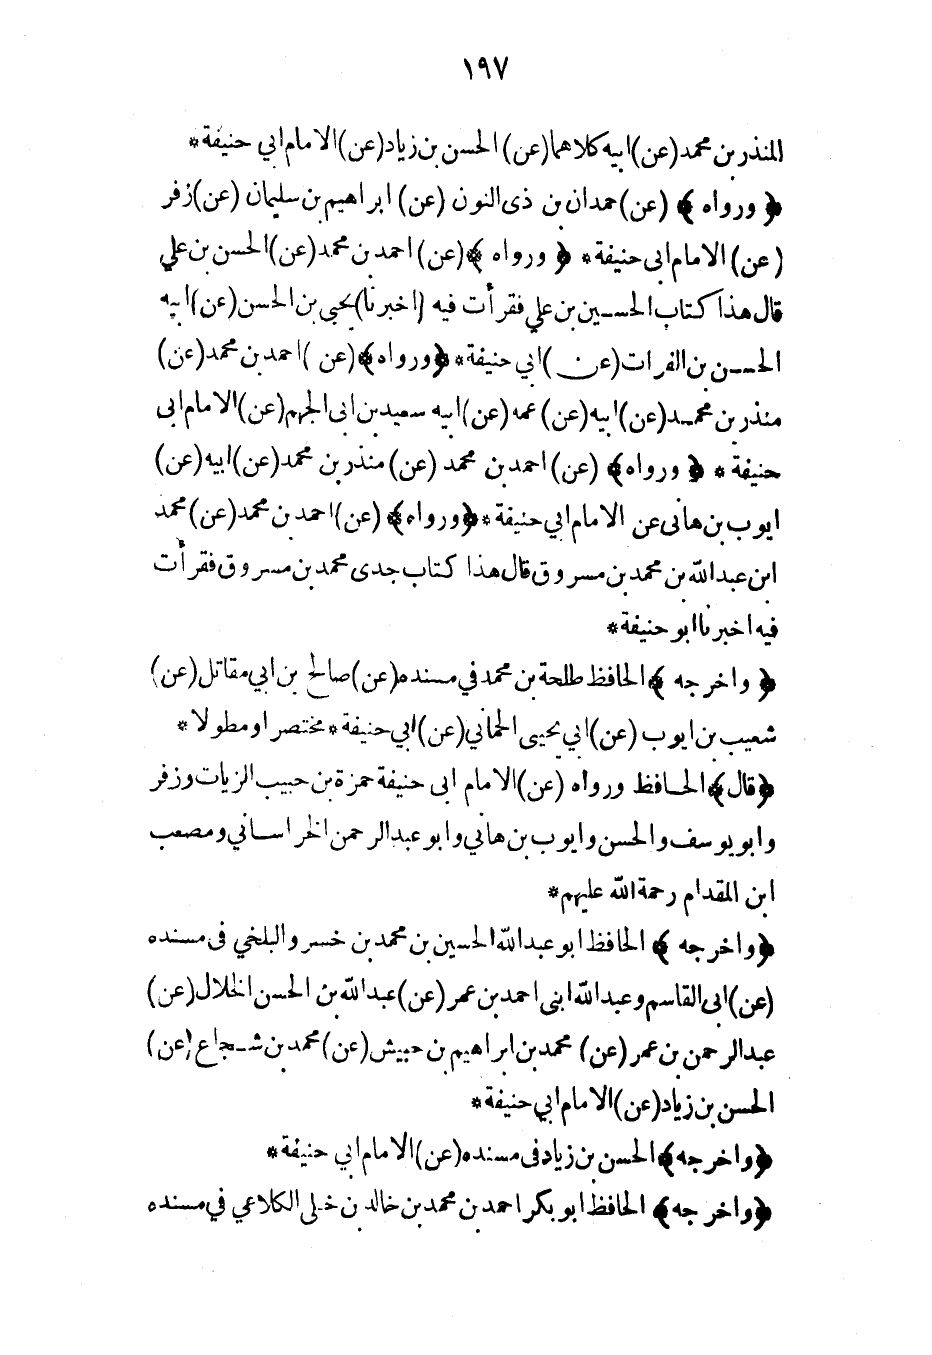 ١٩٧
المنذر بن محمد (عن) ابيه كلاهما (عن) الحسن بن زياد (عن) الامام ابي حنيفة *
﴿ ورواه ﴾ (عن) حمدان بن ذى النون (عن) ابراهيم بن سليمان (عن) زفر
(عن) الامام ابى حنيفة * ﴿ ورواه ﴾ (عن) احمد بن محمد (عن) الحسن بن علي
قال هذا كتاب الحسين بن علي فقرأت فيه (اخبرنا) يحيى بن الحسن (عن) ابيه
الحسن بن الفرات (عن) ابي حنيفة * ﴿ ورواه ﴾ (عن) احمد بن محمد (عن)
منذر بن محمد (عن) ابيه (عن) عمه (عن) ابيه سعيد بن ابى الجهم (عن) الامام ابى
حنيفة * ﴿ ورواه ﴾ (عن) احمد بن محمد (عن) منذر بن محمد (عن) ابيه (عن)
ايوب بن هانى عن الامام ابي حنيفة * ﴿ ورواه ﴾ (عن) احمد بن محمد (عن) محمد
ابن عبد الله بن محمد بن مسروق قال هذا كتاب جدى محمد بن مسروق فقرأت
فيه اخبرنا ابو حنيفة *
﴿ واخرجه ﴾ الحافظ طلحة بن محمد في مسنده (عن) صالح بن ابي مقاتل (عن)
شعيب بن ايوب (عن) ابي يحيى الحماني (عن) ابي حنيفة * مختصرا ومطولا *
﴿ قال ﴾ الحافظ ورواه (عن) الامام ابى حنيفة حمزة بن حبيب الزيات وزفر
وابو يوسف والحسن وايوب بن هاني وابو عبد الرحمن الخراساني ومصعب
ابن المقدام رحمة الله عليهم *
﴿ واخرجه ﴾ الحافظ ابو عبد الله الحسين بن محمد بن خسرو البلخي فى مسنده
(عن) ابى القاسم وعبد الله ابنى احمد بن عمر (عن) عبد الله بن الحسن الخلال (عن)
عبد الرحمن بن عمر (عن) محمد بن ابراهيم بن حبيش (عن) محمد بن شجاع (عن)
الحسن بن زياد (عن) الامام ابي حنيفة *
﴿ واخرجه ﴾ الحسن بن زياد فى مسنده (عن) الامام ابي حنيفة *
﴿ واخرجه ﴾ الحافظ ابو بكر احمد بن محمد بن خالد بن خلى الكلاعي في مسنده